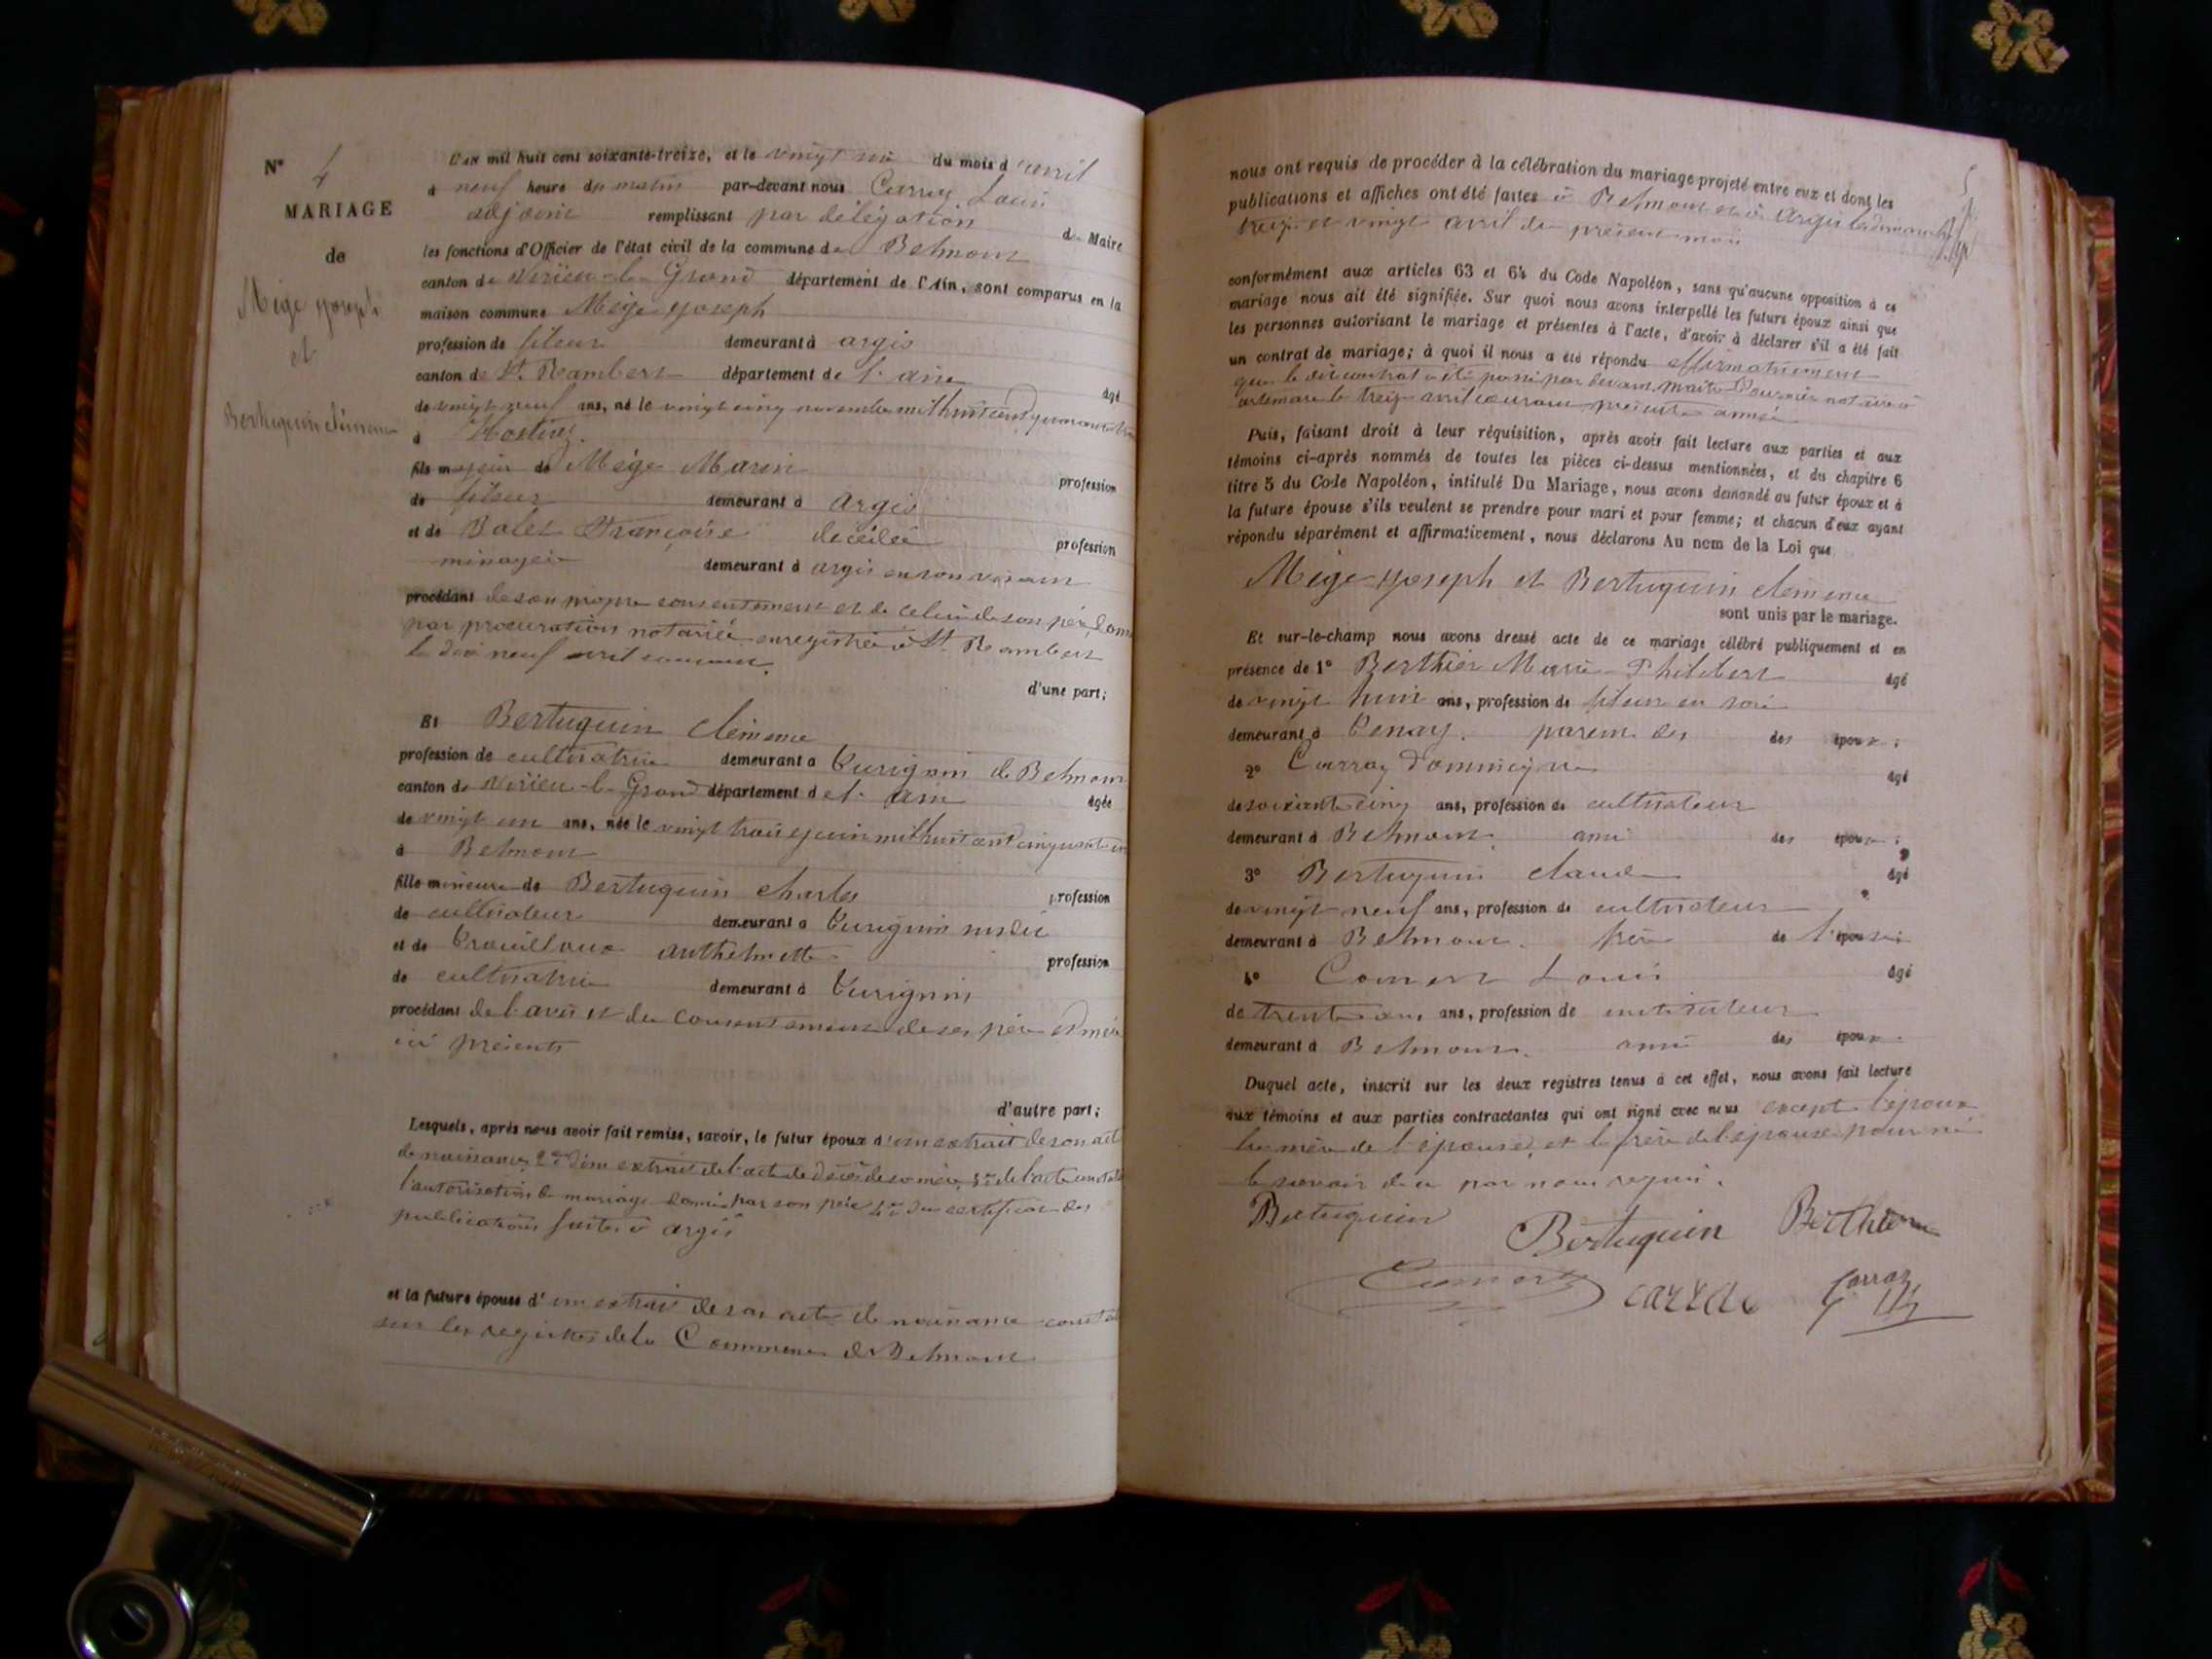 N° 4
MARIAGE
de
Mège Joseph
et
Bertuquin Clémence
L'an mil huit cent soixante-treize, et le vingt six du mois d'avril
à neuf heure du matin par-devant nous Carraz Louis
adjoint remplissant par délégation de Maire
les fonctions d'Officier de l'état civil de la commune de Belmont
canton de Virieu-le-Grand département de l'Ain, sont comparus en la
maison commune Mège Joseph
profession de fileur demeurant à argis
canton de St. Rambert département de l'ain âgé
de vingt neuf ans, né le vingt cinq novembre mil huit cent quarante trois
à Hostiaz
fils majeur de Mège Marin profession
de fileur demeurant à argis
et de Balet Françoise décédée profession
ménagère demeurant à argis en son vivant
procédant de son propre consentement et de celui de son père, donné
par procuration notariée enregistrée à St. Rambert
le dix neuf avril courant.
d'une part;
Et Bertuquin Clémence
profession de cultivatrice demeurant à Cursignin de Belmont
canton de Virieu-le-Grand département de l'ain âgée
de vingt un ans, née le vingt trois juin mil huit cent cinquante un
à Belmont
fille mineure de Bertuquin Charles profession
de cultivateur demeurant à susdit
et de anthelmette profession
de cultivatrice demeurant à
procédant de l'avis et du consentement de ses père et mère
ici présents
d'autre part;
Lesquels, après nous avoir fait remise, savoir, le futur époux d'un extrait de son acte
de naissance, 2° d'un extrait de l'acte de décès de sa mère, 3° de l'acte constatant
l'autorisation de mariage donnée par son père 4° du certificat des
publications faites à argis
et la future épouse d'un extrait de son acte de naissance constaté
sur les registres de la Commune de Belmont
nous ont requis de procéder à la célébration du mariage projeté entre eux et dont les
publications et affiches ont été faites à Belmont et à Argis les dimanches
treize et vingt avril du présent mois
conformément aux articles 63 et 64 du Code Napoléon, sans qu'aucune opposition à ce
mariage nous ait été signifiée. Sur quoi nous avons interpellé les futurs époux ainsi que
les personnes autorisant le mariage et présentes à l'acte, d'avoir à déclarer s'il a été fait
un contrat de mariage; à quoi il nous a été répondu affirmativement
que le dit contrat a été passé par devant maître notaire à
artemare le treize avril courant présente année
Puis, faisant droit à leur réquisition, après avoir fait lecture aux parties et aux
témoins ci-après nommés de toutes les pièces ci-dessus mentionnées, et du chapitre 6
titre 5 du Code Napoléon, intitulé Du Mariage, nous avons demandé au futur époux et à
la future épouse s'ils veulent se prendre pour mari et pour femme; et chacun d'eux ayant
répondu séparément et affirmativement, nous déclarons Au nom de la Loi que
Mège Joseph et Bertuquin Clémence
sont unis par le mariage.
Et sur-le-champ nous avons dressé acte de ce mariage célébré publiquement et en
présence de 1° Berthier Marie Philibert âgé
de vingt huit ans, profession de fileur en soie
demeurant à Tenay. parent des des époux;
2° Carraz Dominique âgé
de soixante cinq ans, profession de cultivateur
demeurant à Belmont. ami des époux;
3° Bertuquin Claude âgé
de vingt neuf ans, profession de cultivateur
demeurant à Belmont. frère de l'épouse;
4° Comert Louis âgé
de trente ans, profession de instituteur
demeurant à Belmont. ami des époux.
Duquel acte, inscrit sur les deux registres tenus à cet effet, nous avons fait lecture
aux témoins et aux parties contractantes qui ont signé avec nous excepté l'époux
la mère de l'épouse, et le frère de l'épouse pour ne
le savoir de ce par nous requis.
Bertuquin Bertuquin Berthier
Comert carraz Carraz